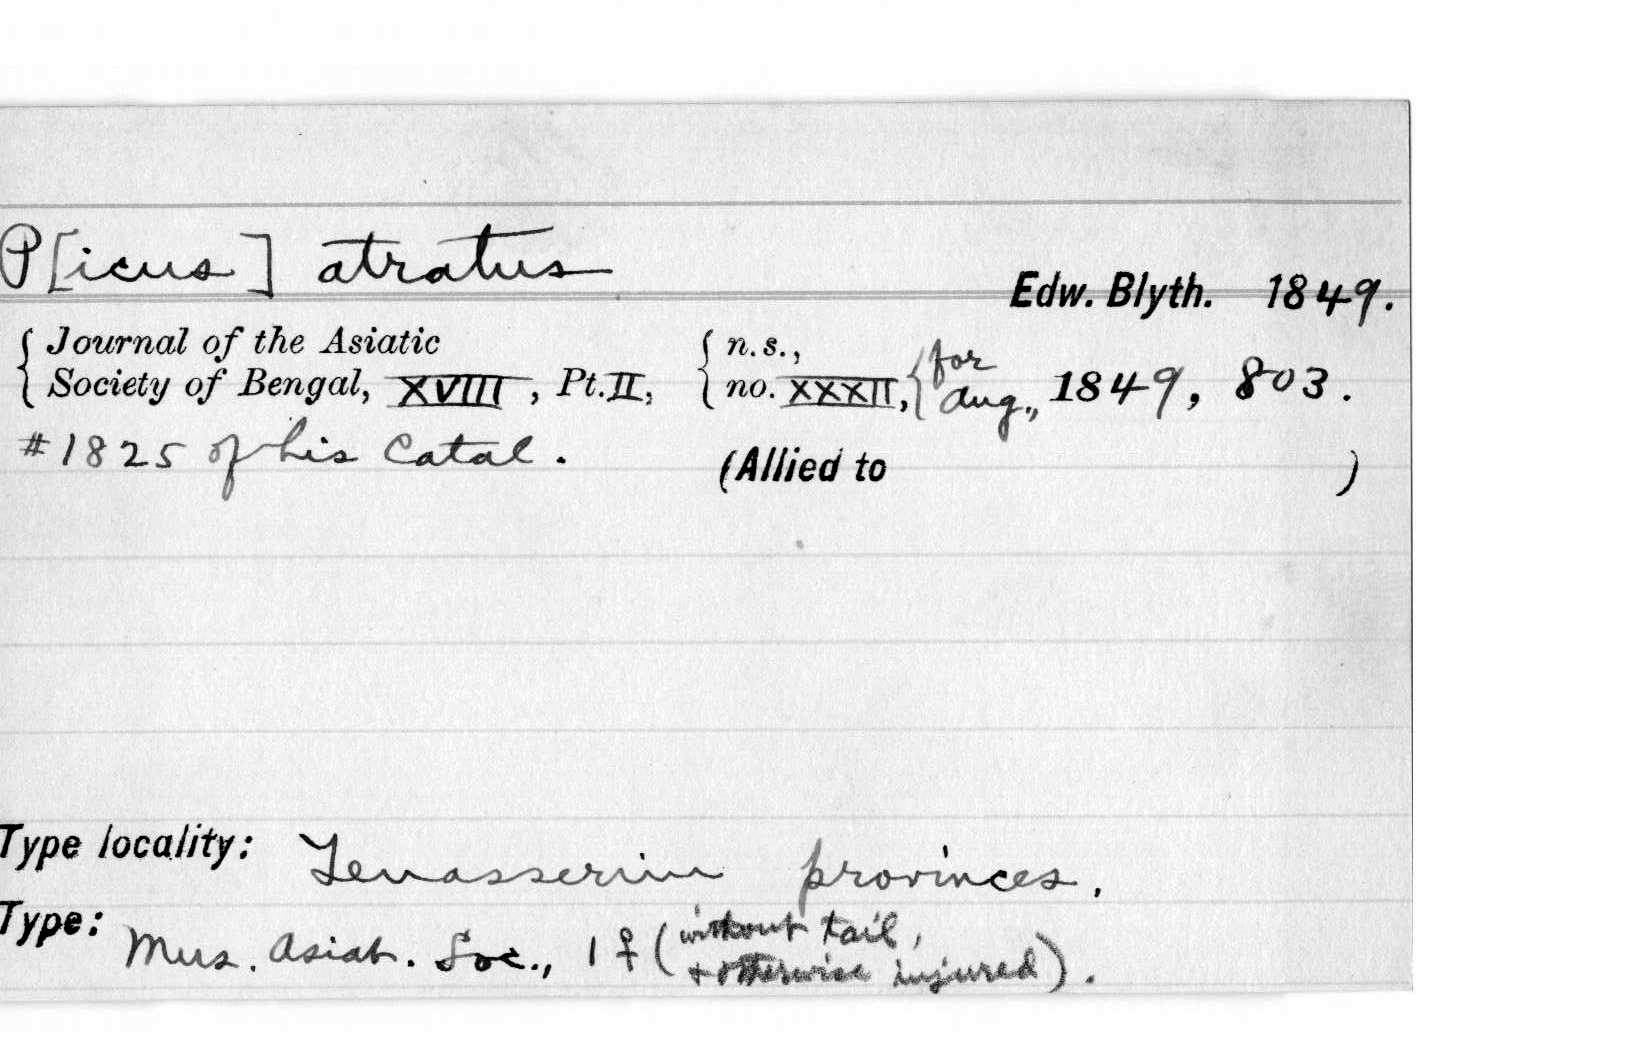 P[icus] atratus
Edw. Blyth. 1849.
{ Journal of the Asiatic { n.s.,
Society of Bengal, XVIII, Pt. II, no. XXXII, { for Aug., 1849, 803.
#1825 of his Catal. (Allied to )
Type locality: Tenasserim provinces.
Type: Mus. Asiat. Soc., 1 ♀ (without tail,
+ otherwise injured).